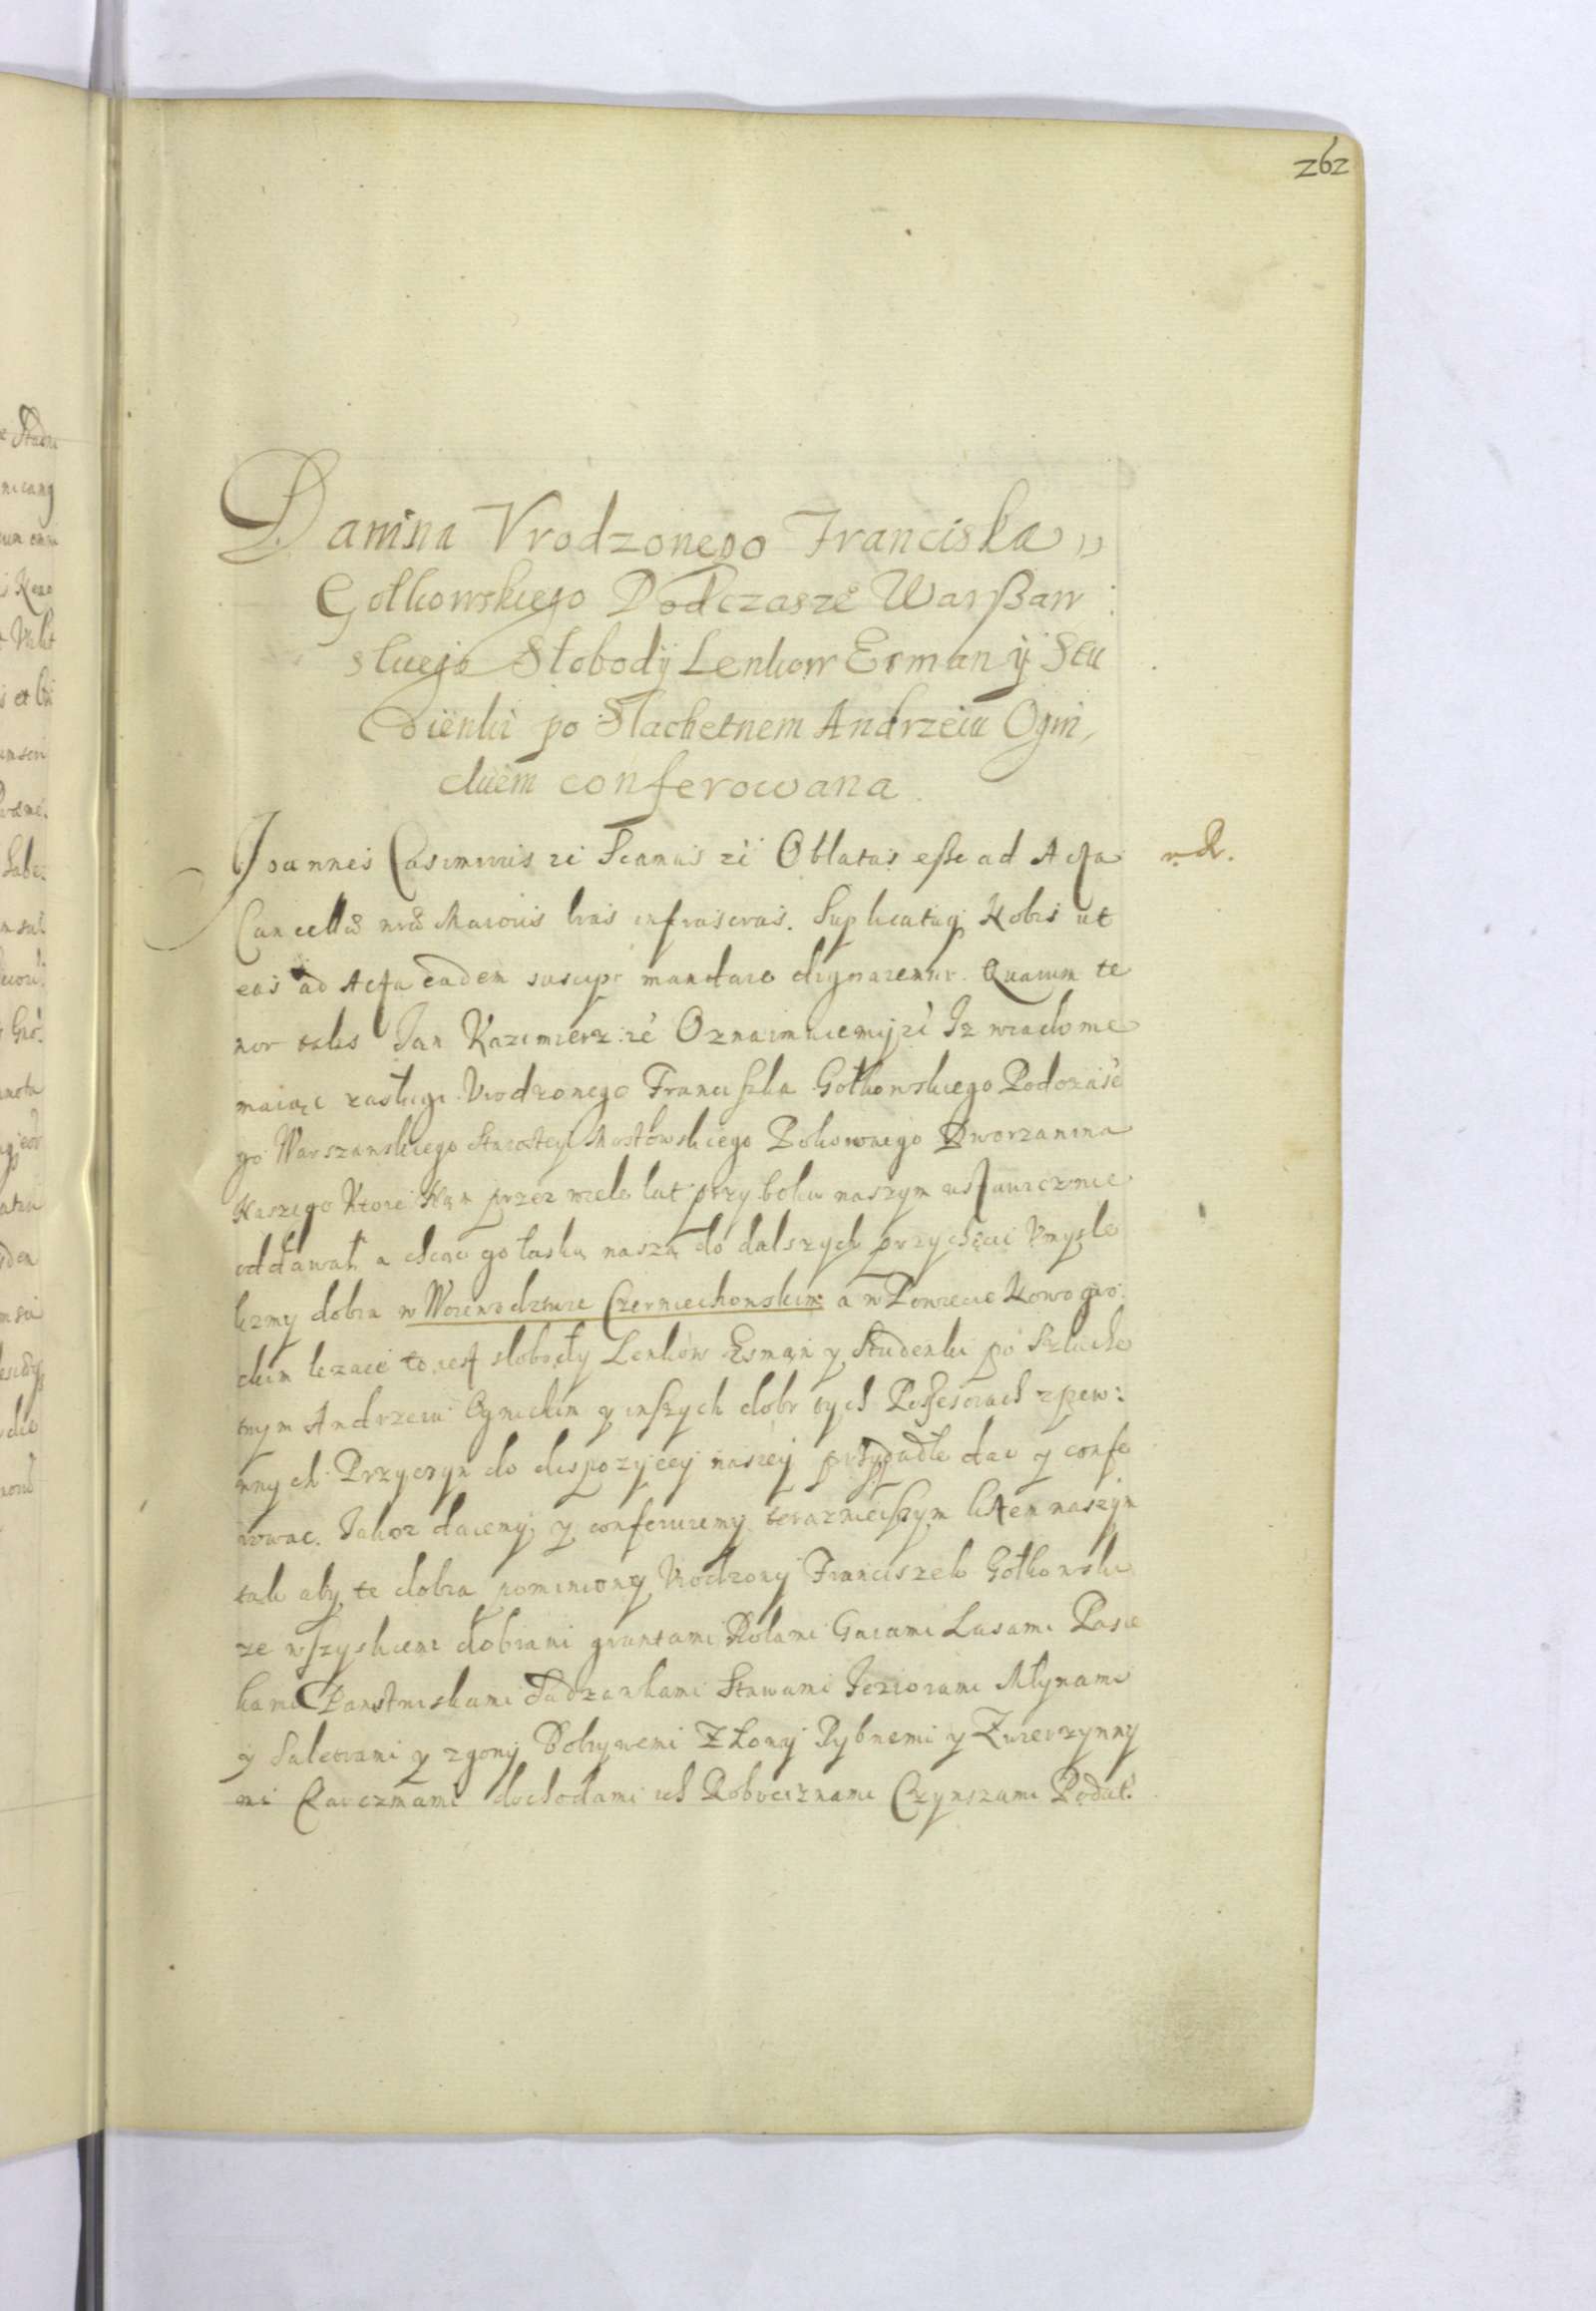 262
Danina Vrodzonego Franciska
Gołkowskiego Podczasze Warßaw
skiego Słobody Lenkow Esman y Stu
dienki po Slachetnem Andrzeiu Ogni,
ckiem conferowana
Joannes Casimirus zc Scamus zc Oblatas esse ad Acta
Cancellae nrae Maioris lras infrascras. Suplicatuq Nobis ut
eas ad Acta eadem suscipi mandare dignaremur. Quarum te
nor talis Jan Kazimierz zc Oznaimuiemy zc Iz wiadome
maiąc zasługi Vrodzonego Franciszka Gołkowskiego Podczasze
go Warszawskiego Starosty Mostowskiego Pokowego Dworzanina
Naszego Ktore Nam przez wiele lat przy boku naszym ustawicznie
oddawał a chcąc go łaską naszą do dalszych przychęcic Vmysle
lizmy dobra w Woiewodztwie Czerniechowskim a w Powiecie Nowogro:
ckim lezące to iest słobody Lenkow Esmań y Studenki po Szlache
tnym Andrzeiu Ognickim y inszych dobr tych Possesorach z pew:
nych Przyczyn do dispozycey naszey przypadłe dac y confe
rowac. Jakoz daiemy y conferuiemy terazniejszym listem naszym
tak aby te dobra pomieniony Vrodzony Franciszek Gołkowski
ze wszyskiemi dobrami gruntami Rolami Gaiami Lasami Pasie
kami Panstwiskami Sadzawkami Stawami Jeziorami Młynami
y Saletrami y zgony Bobrowemi Z Łowy Rybnemi y Zwierzynny
mi Karczmami dochodami ich Robociznami Czynszami Podat: